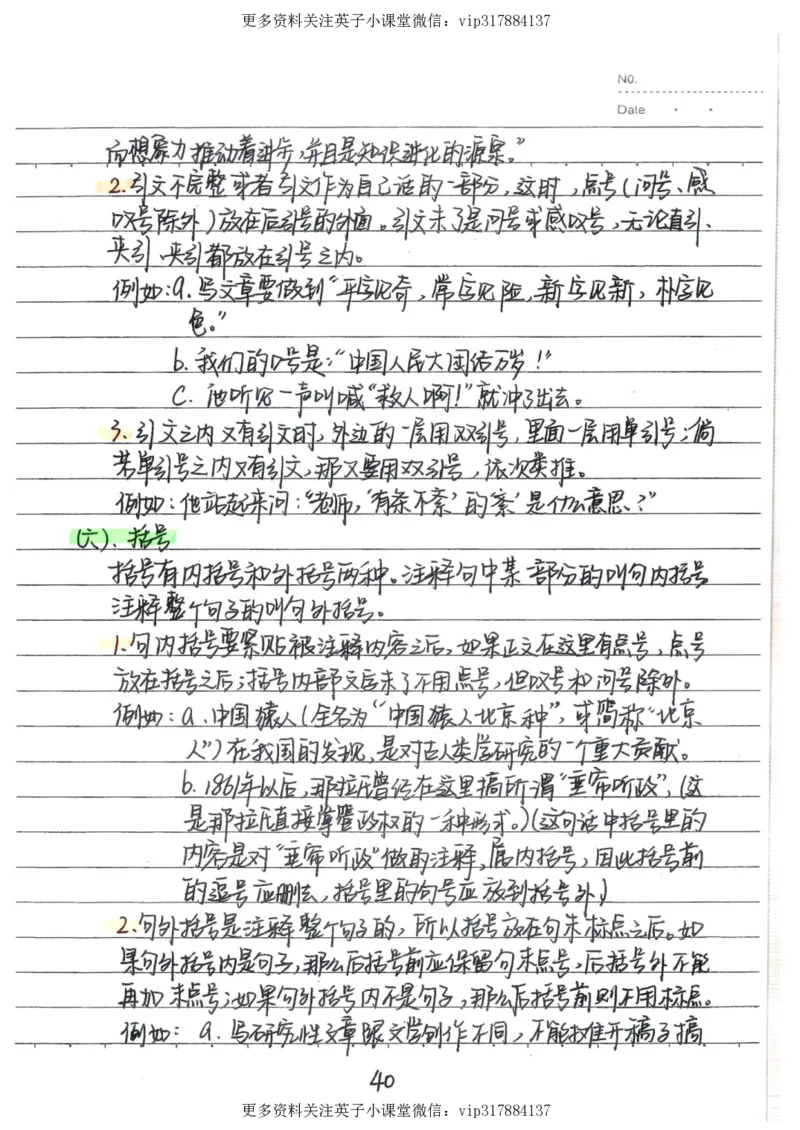 更多资料关注英子小课堂微信：vip317884137
NO.
Date
而想象力推动着进步，并且是知识进化的源泉。”
2.引文不完整或者引文作为自己话的一部分，这时，点号(问号、感
叹号除外)放在后引号的外面。引文末了是问号或感叹号，无论直引、
夹引都放在引号之内。
例如：a.写文章要做到“平字见奇，常字见险，新字见新，朴字见
色。”
b.我们的口号是：“中国人民大团结万岁！”
C. 他听见一声叫喊“救人啊！”就冲了出去。
3.引文之内又有引文时，外边的一层用双引号，里面一层用单引号；倘
若单引号之内又有引文，那又要用双引号，依次类推。
例如：他站起来问：“老师，‘有条不紊’的‘紊’是什么意思？”
(六)、括号
括号有内括号和外括号两种。注释句中某一部分的叫句内括号
注释整个句子的叫句外括号。
1.句内括号要紧贴被注释内容之后，如果正文在这里有点号，点号
放在括号之后；括号内部文字末了不用点号，但叹号和问号除外。
例如：a.中国猿人(全名为“中国猿人北京种”，或简称“北京
人”)在我国的发现，是对古人类学研究的一个重大贡献。
b. 1861年以后，那拉氏曾经在这里搞所谓“垂帘听政”，(这
是那拉氏直接掌握政权的一种形式。)(这句话中括号里的
内容是对“垂帘听政”做的注释，属内括号，因此括号前
的逗号应删去，括号里的句号应放到括号外)
2.句外括号是注释整个句子的，所以括号放在句末标点之后。如
果句外括号内是句子，那么后括号前应保留句末点号，后括号外不能
再加末点号；如果句外括号内不是句子，那么后括号前则不用标点。
例如：a.写研究性文章跟文学创作不同，不能摊开稿子搞
40
更多资料关注英子小课堂微信：vip317884137